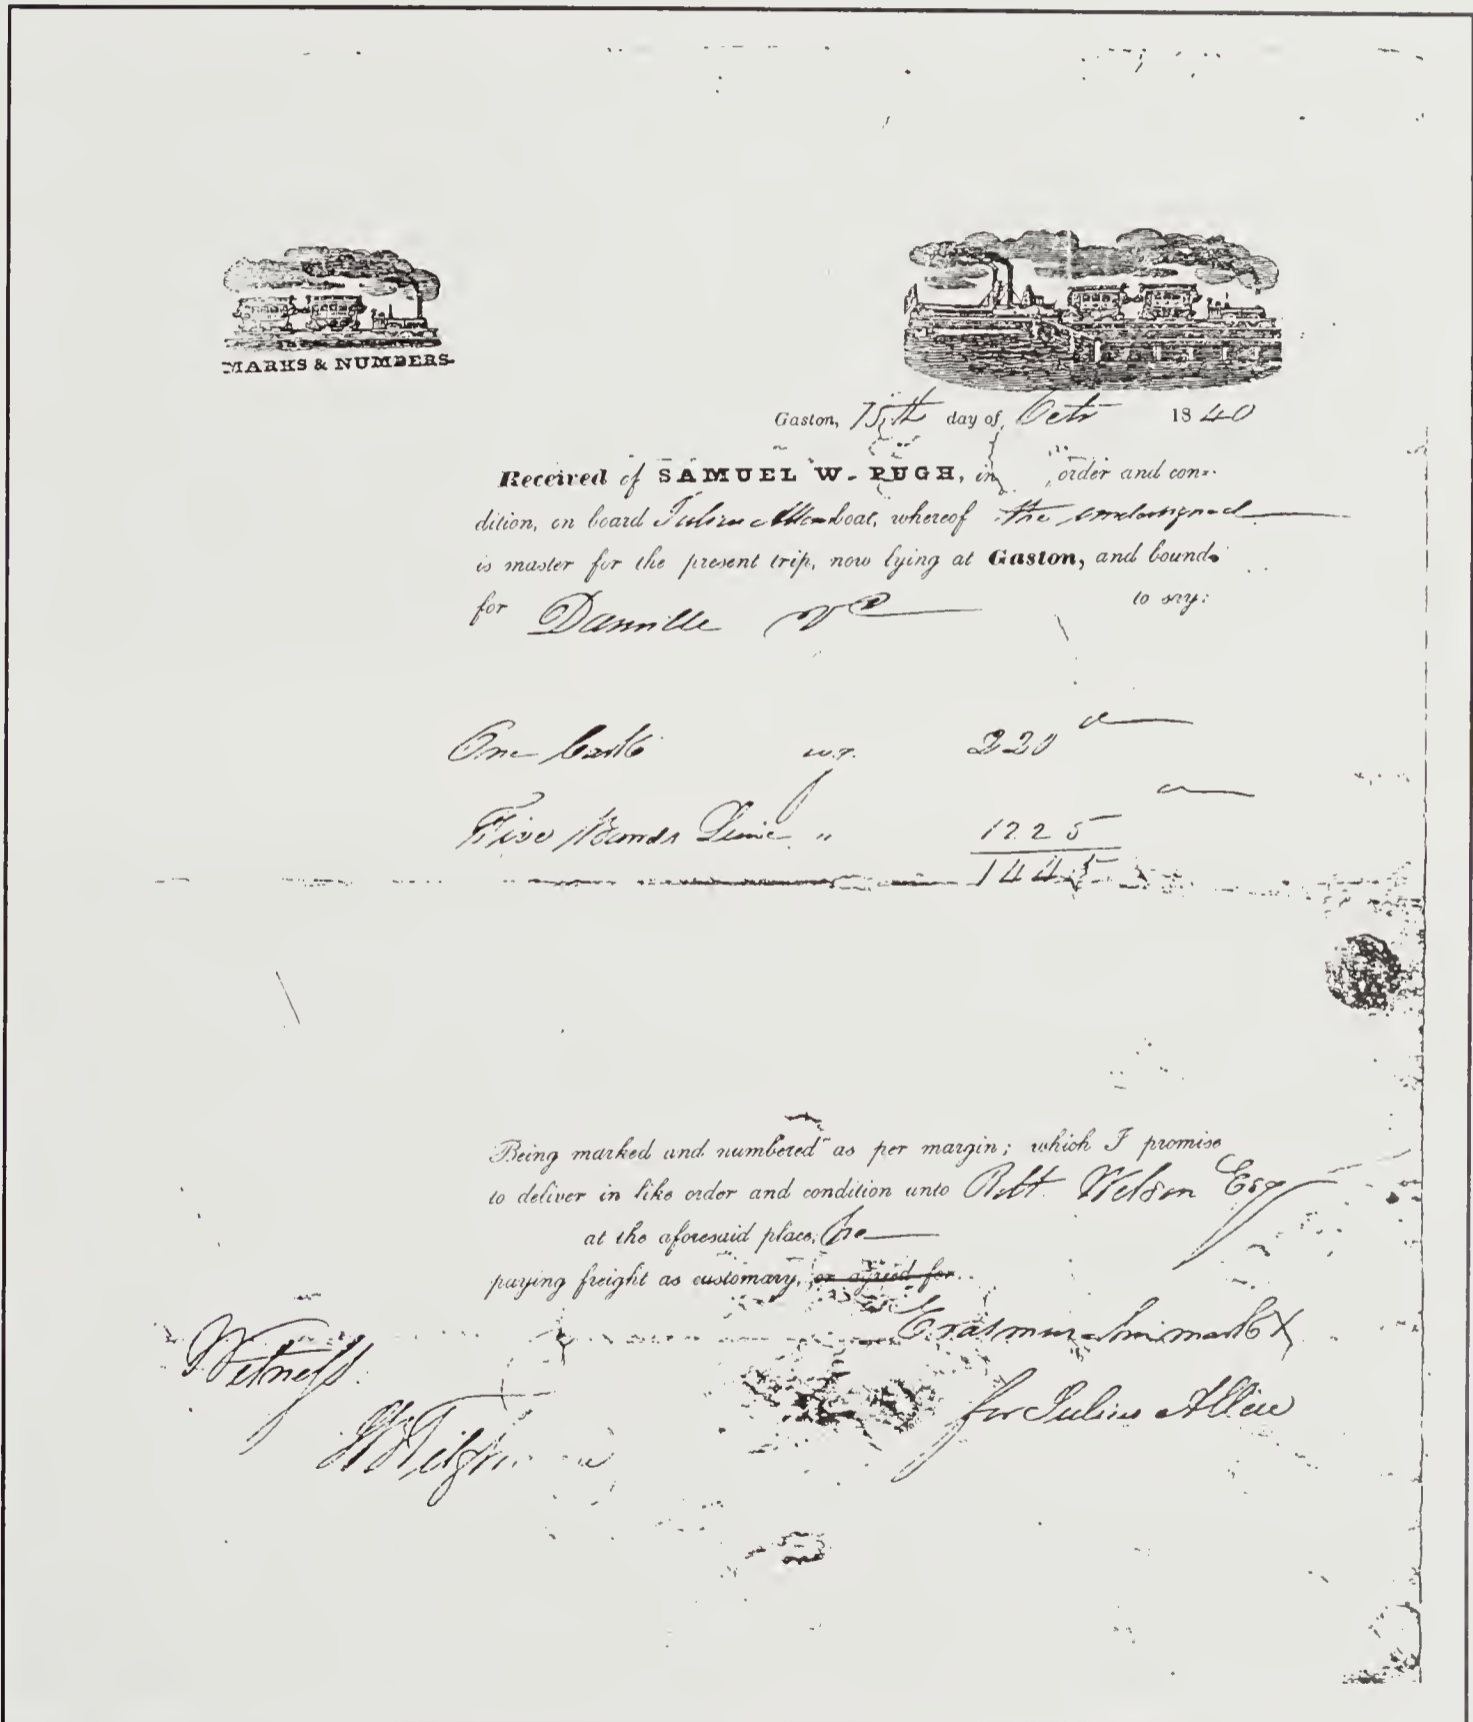 MARKS & NUMBERS
Gaston, 15th day of Octr 1840
Received of SAMUEL W. PUGH, in order and con-
dition, on board Julius Allen boat, whereof the undersigned
is master for the present trip, now lying at Gaston, and bound
for Danville Va to say:
One Cask wt. 220
Five Lime " 1225
1445
Being marked and numbered as per margin; which I promise
to deliver in like order and condition unto Robt. Wilson Esq
at the aforesaid place, he
paying freight as customary, or agreed for
Erasmus his mark X
Witness
for Julius Allen